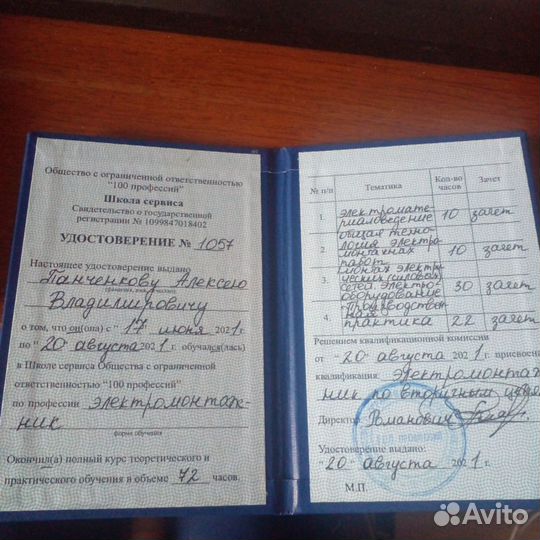 Общество с ограниченной ответственностью
"100 профессий"
Школа сервиса
Свидетельство о государственной
регистрации № 1099847018402
УДОСТОВЕРЕНИЕ № 1057
Настоящее удостоверение выдано
Панченкову Алексею
Владимировичу
о том, что он(она) с "17 июня 2021 г.
по "20" августа 2021 г. обучался(лась)
в Школе сервиса Общества с ограниченной
ответственностью "100 профессий"
по профессии электромонтаж-
ник
форма обучения
Окончил(а) полный курс теоретического и
практического обучения в объеме 72 часов.
№ п/п Тематика Кол-во часов Зачет
1. электромате-
риаловедение 10 зачет
2. общая техно-
логия электро-
монтажных
работ 10 зачет
3. монтаж электри-
ческих (силовых)
сетей электро-
оборудование 30 зачет
4. Производствен-
ная
практика 22 зачет
Решением квалификационной комиссии
от "20" августа 2021 г. присвоена
квалификация: Электромонтаж
ник по вторичным
Директор: Романович
Удостоверение выдано:
"20" августа 2021 г.
М.П.
Avito